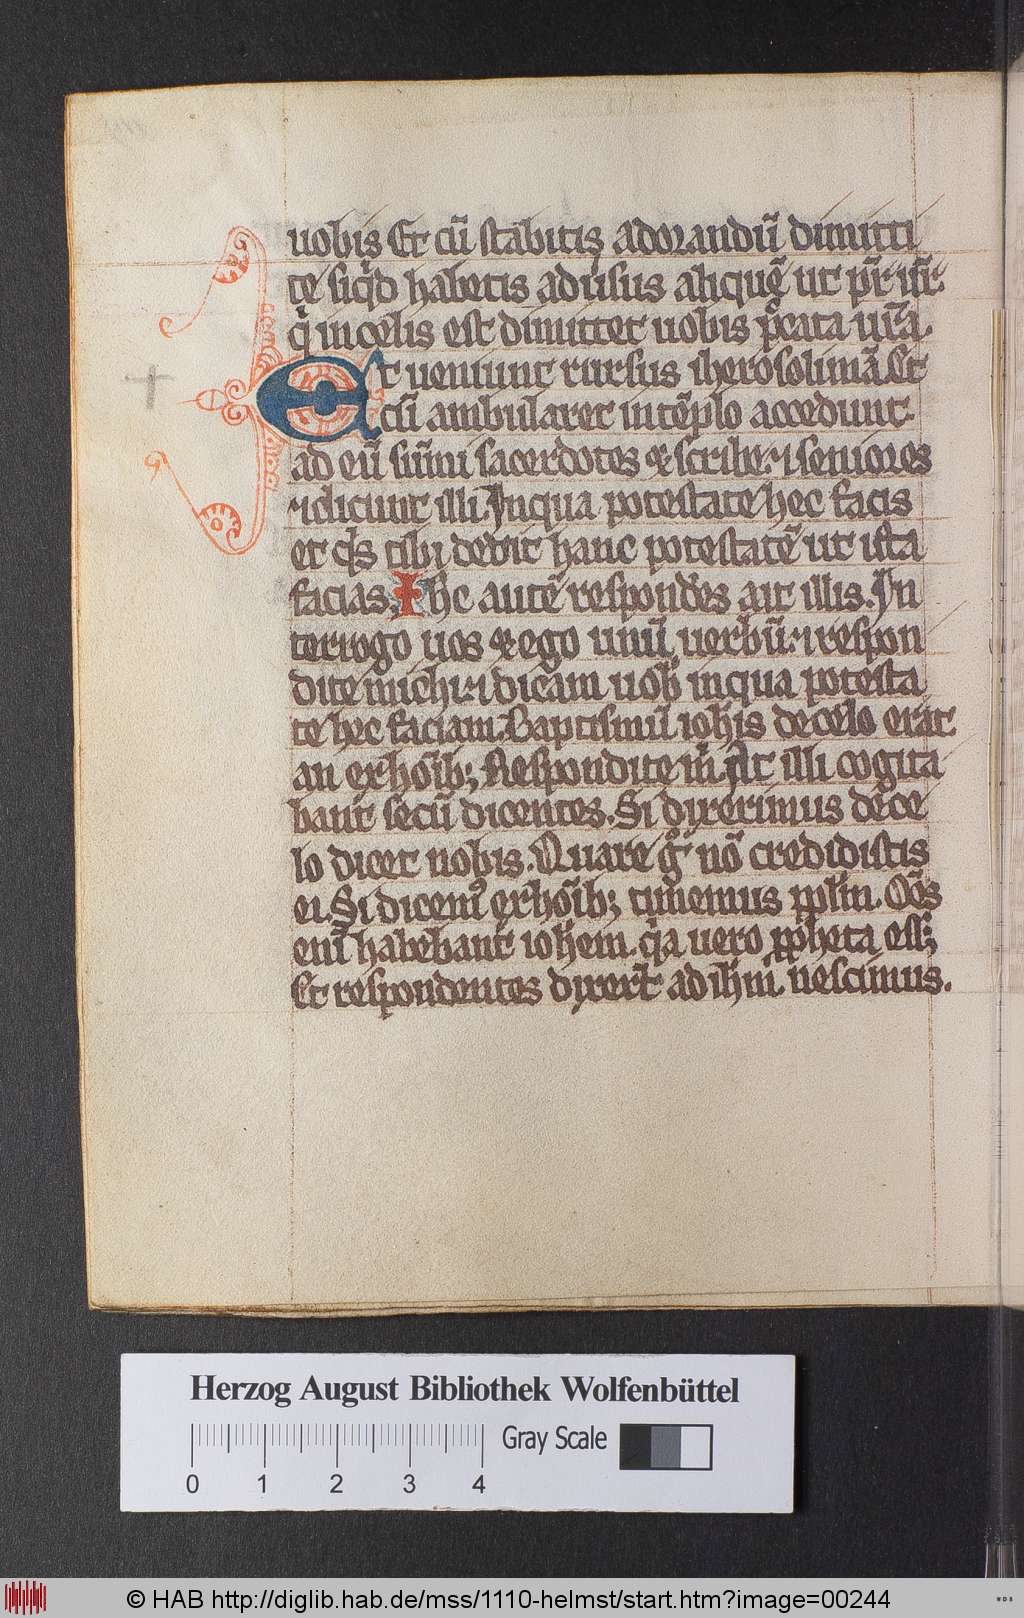 uobis Et cũ stabitis adorandũ dimitti
te siq̇d habetis adũsus aliquẽ ut pr̃ ur̃
q̇ in celis est dimittet uobis p̃cata ur̃a.
Et ueniunt rursus iherosolimã. Et
cũ ambularet in tẽplo accedunt
ad eũ sũmi sacerdotes ⁊ scribe ⁊ seniores
⁊ dicunt illi. In qua potestate hec facis
et q̇s tibi dedit hanc potestatẽ ut ista
facias. Ihc autẽ respondẽs ait illis. In
terrogo uos ⁊ ego unũ uerbũ. ⁊ respon
dite michi. ⁊ dicam uob̃ in qua potesta
te hec faciam. Baptismũ ioh̃is de celo erat
an ex hoĩb; Respondite m̃. At illi cogita
bant secũ dicentes. Si dixerimus de ce
lo dicet nobis. Quare g̊ nõ credidistis
ei. Si dicem⁹ ex hoĩb; timemus ppl̃m. Om̃s
enĩ habebant ioh̃em. q̇a uero ppheta ess;
Et respondentes dixer̃t ad ih̃m. nescimus.
Herzog August Bibliothek Wolfenbüttel
Gray Scale
0 1 2 3 4
© HAB http://diglib.hab.de/mss/1110-helmst/start.htm?image=00244